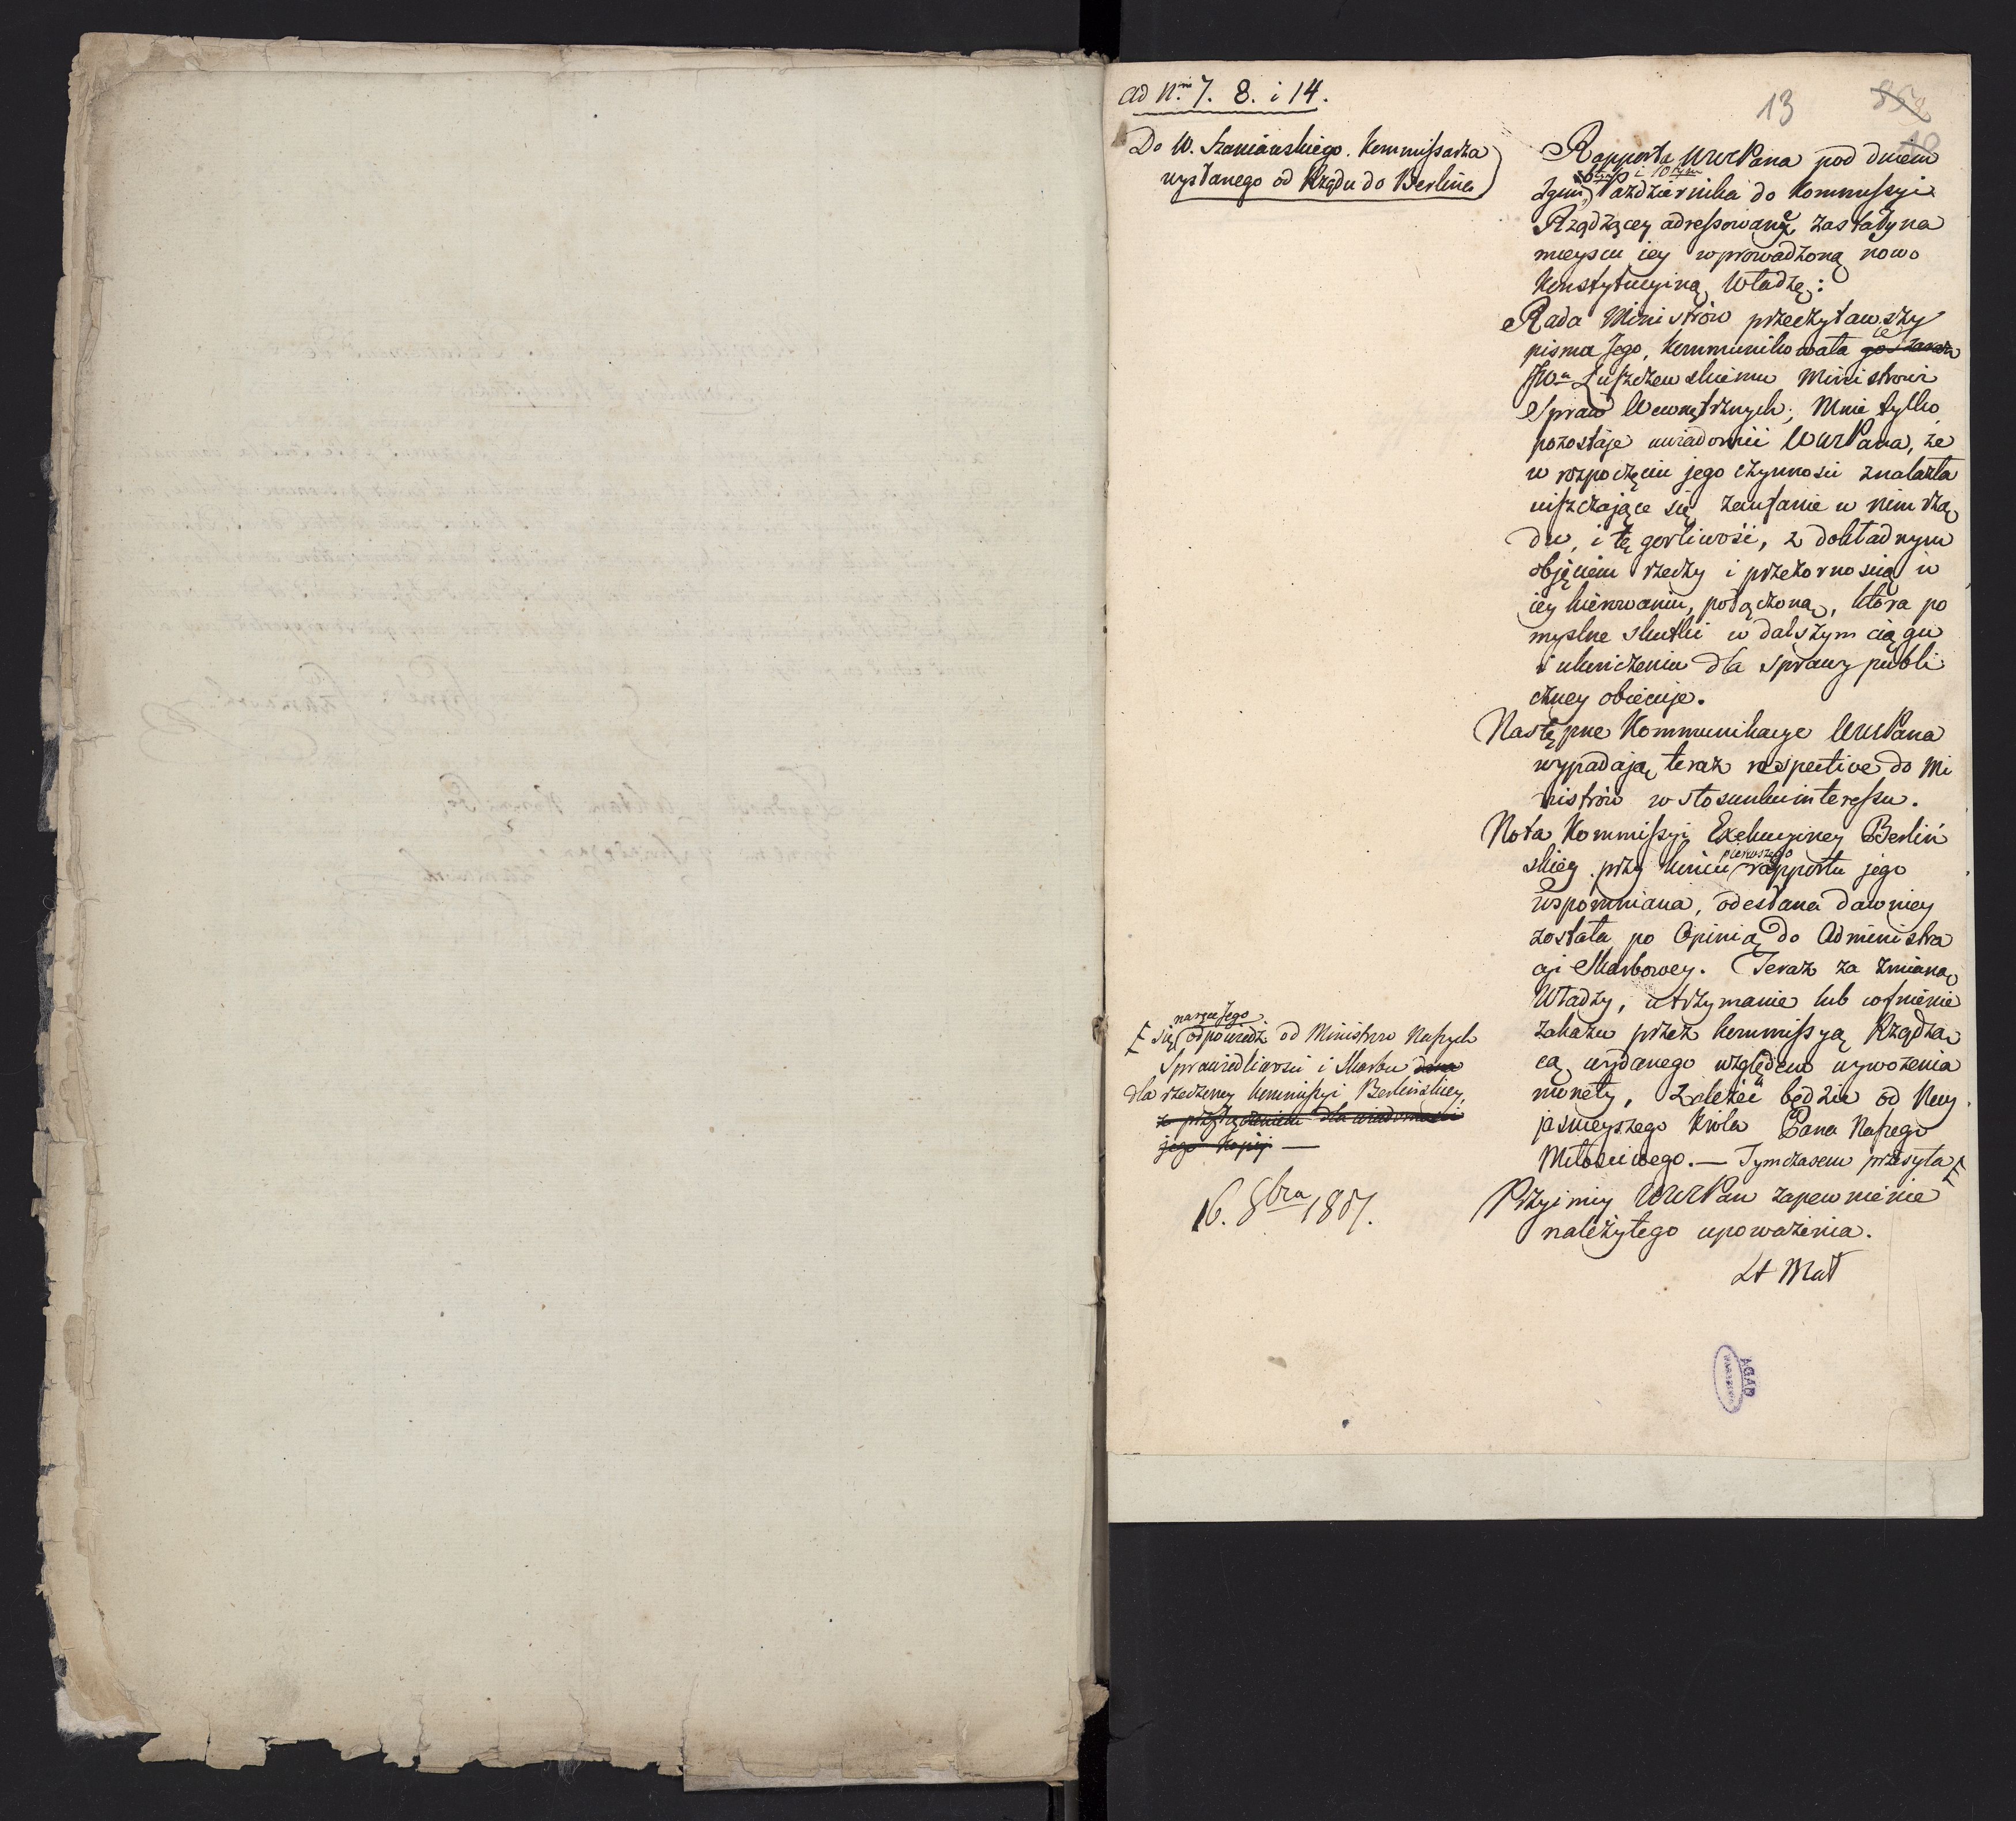 ad Nm 7. 8. i 14.
Do W. Szaniawskiego Kommissarza
wysłanego od Rządu do Berlina
13
Rapporta WWPana pod dniem
6tym i 10tym
Października do Kommissyi
Rządzącey adressowane, zastały na
mieyscu iey wprowadzoną nowo
Konstytucyiną Władzę:
Rada Ministrów przeczytawszy
pisma Jego, kommunikowała
JWu Łuszczewskiemu Ministrowi
Spraw Wewnętrznych; Mnie tylko
pozostaje uwiadomić WWPana, że
w rozpoczęciu jego czynności znalazła
uiszczające się zaufanie w nim rzą
du, i tę gorliwość, z dokładnym
objęciem rzeczy i przezornością w
iey kierowaniu, połączoną, która po
myslne skutki w dalszym ciągu
i ukończeniu dla sprawy publi
czney obiecuje.
Następne Kommunikacye WWPana
wypadają teraz respective do Mi
nistrów w stosunku interessu.
Nota Kommissyi Exekucyiney Berliń
skiey przy końcu pierwszego rapportu jego
wspomniana, odesłana dawniey
została po Opinią do Administra
cyi Skarbowey. Teraz za zmianą
Władzy, utrzymanie lub cofnienie
zakazu przez kommissyą Rządzą
cą wydanego względem wywożenia
monety, zależeć będzie od Nay
jasnieyszego Króla Pana Naszego
Miłościwego. — Tymczasem przesyła
się na ręce Jego odpowiedź od Ministrów Naszych
Sprawiedliwości i Skarbu dana
dla rzeczoney kommissyi Berlińskiey,
z przyłączeniem dla wiadomości
jego kopij —
Przyimiy WWPan zapewnienie
należytego upoważenia.
16. 8bra 1807.
St Mał
AGAD
WARSZAWA